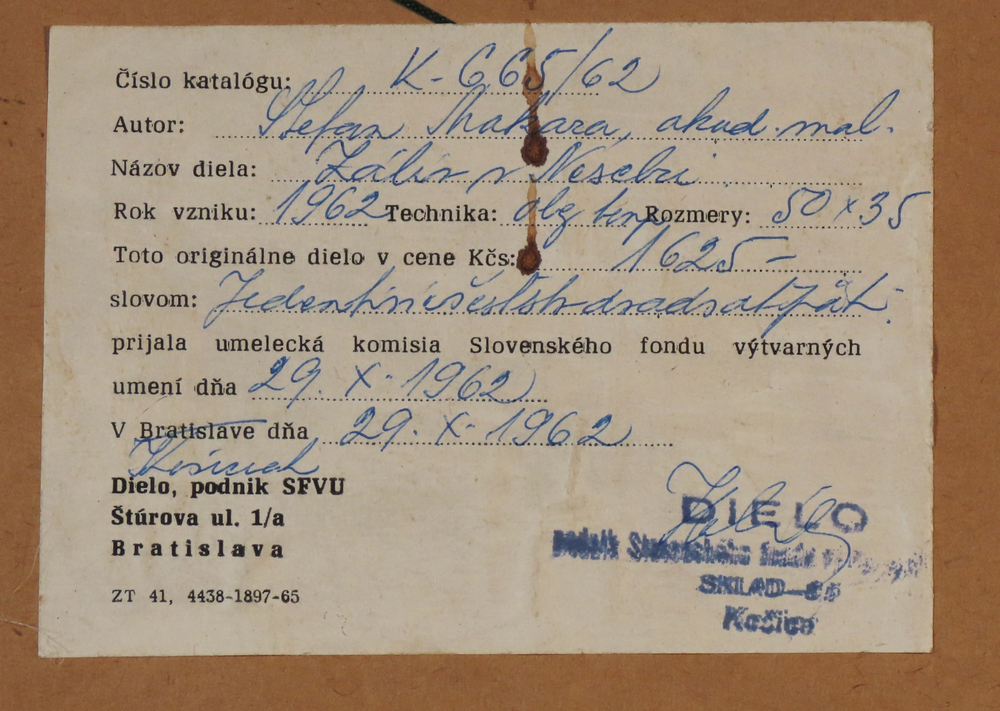 Číslo katalógu: K-665/62
Autor: Štefan Makara, akad. mal.
Názov diela: Záliv v Nesebri
Rok vzniku: 1962 Technika: temp Rozmery: 50 x 35
Toto originálne dielo v cene Kčs: 1625-
slovom:
prijala umelecká komisia Slovenského fondu výtvarných
umení dňa 29. X. 1962
V Bratislave dňa 29. X. 1962
Košiciach
Dielo, podnik SFVU
Štúrova ul. 1/a
Bratislava
ZT 41, 4438-1897-65
DIELO
podnik Slovenského fondu
SKLAD
Košice